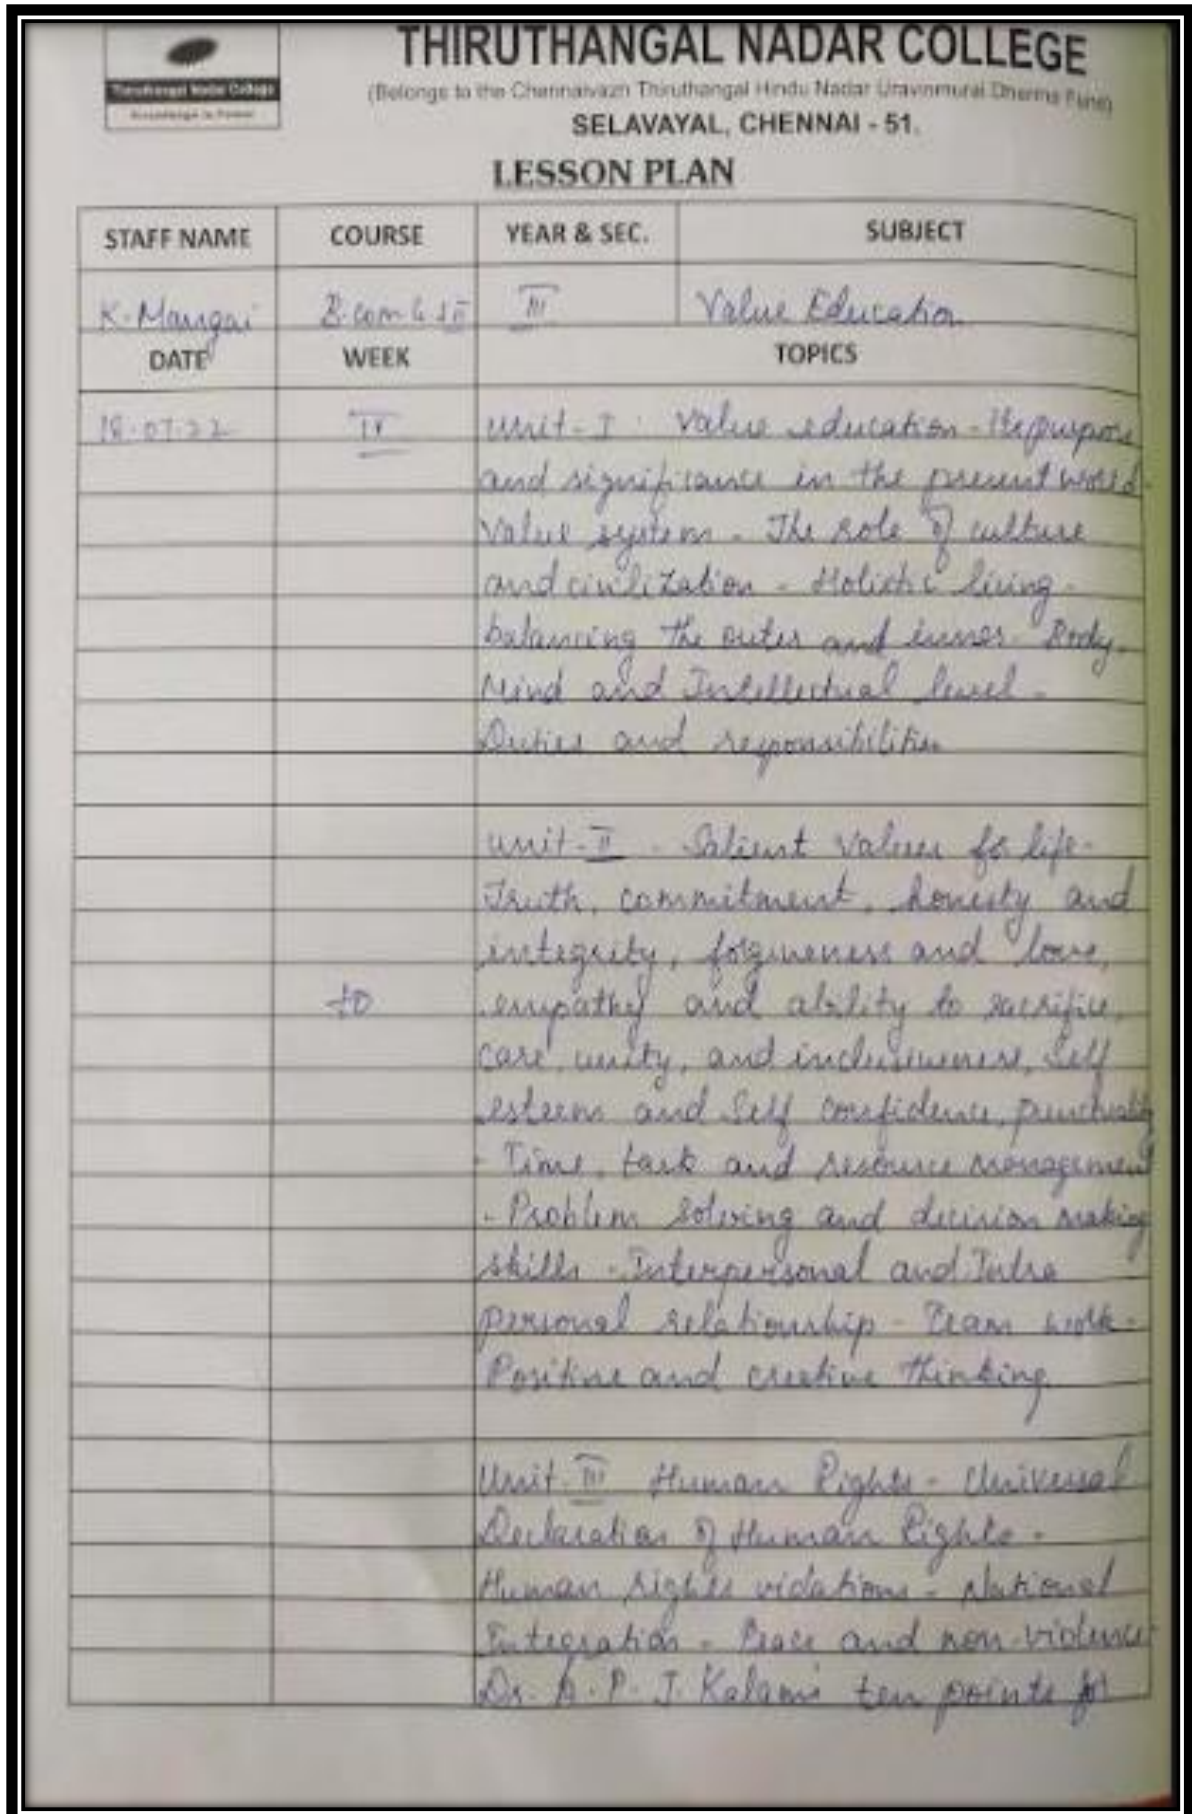 Thiruthangal Nadar College
THIRUTHANGAL NADAR COLLEGE
(Belongs to the Chennaivazh Thiruthangal Hindu Nadar Uravinmurai Dharma Fund)
SELAVAYAL, CHENNAI - 51.
LESSON PLAN
STAFF NAME COURSE YEAR & SEC. SUBJECT
K. Mangai B.com III Value Education
DATE WEEK TOPICS
18.07.22 IV Unit-I Value education - Its purpose
and significance in the present world
Value system - The role of culture
and civilization - Holistic living -
balancing the outer and inner - Body
Mind and Intellectual level -
Duties and responsibilities
Unit-II - Salient Values for life -
Truth, commitment, honesty and
integrity, forgiveness and love,
to empathy and ability to sacrifice,
care, unity, and inclusiveness, Self
esteem and Self confidence, punctuality
- Time, task and resource management
- Problem solving and decision making
skills - Interpersonal and Intra
personal relationship - Team work -
Positive and creative thinking
Unit-III Human Rights - Universal
Declaration of Human Rights -
Human rights violations - National
Integration - Peace and non-violence
Dr. A.P.J. Kalam's ten points for